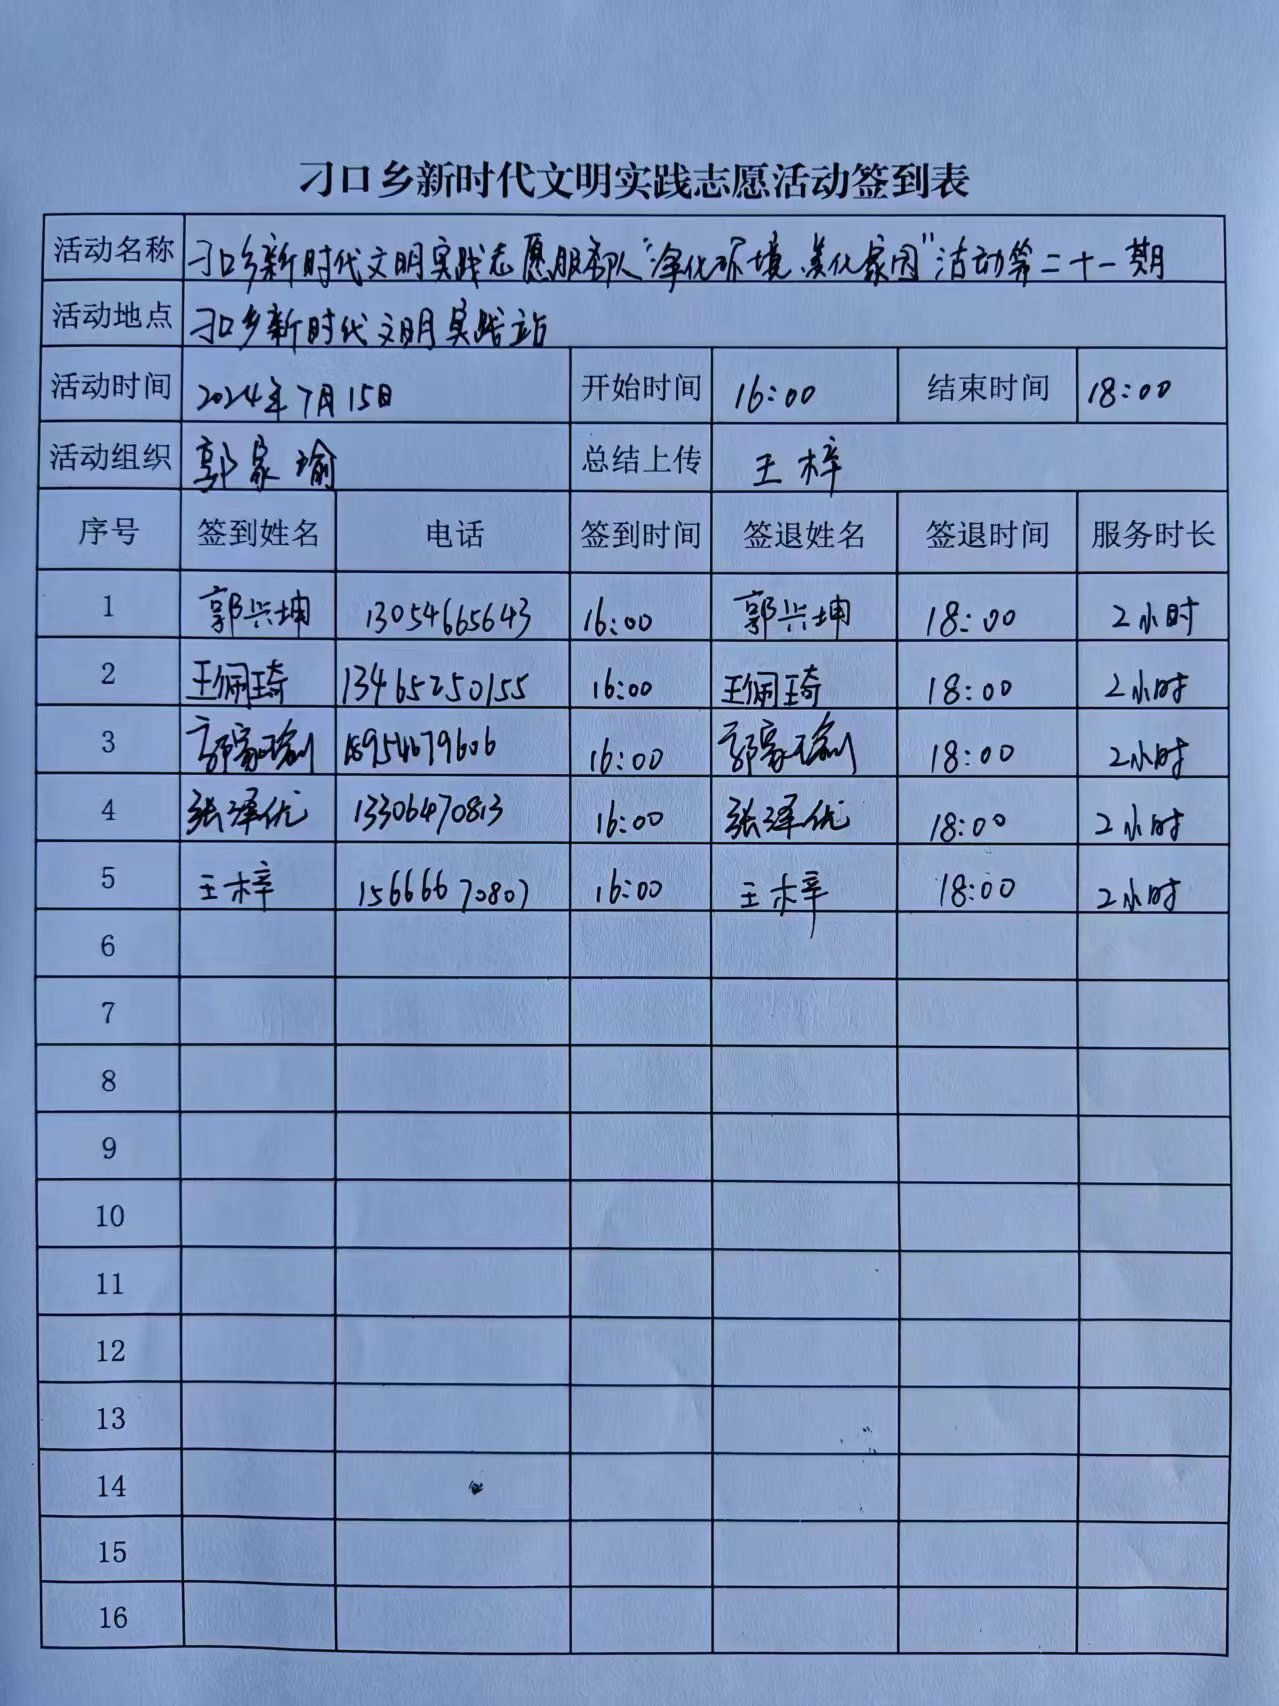 刁口乡新时代文明实践志愿活动签到表
活动名称 刁口乡新时代文明实践志愿服务队“净化环境、美化家园”活动第二十一期
活动地点 刁口乡新时代文明实践站
活动时间 2024年7月15日 开始时间 16:00 结束时间 18:00
活动组织 郭家瑜 总结上传 王梓
序号 签到姓名 电话 签到时间 签退姓名 签退时间 服务时长
1 郭兴坤 13054665643 16:00 郭兴坤 18:00 2小时
2 王佩琦 13465250155 16:00 王佩琦 18:00 2小时
3 郭家瑜 15954679606 16:00 郭家瑜 18:00 2小时
4 张泽优 13306470813 16:00 张泽优 18:00 2小时
5 王梓 15666670807 16:00 王梓 18:00 2小时
6
7
8
9
10
11
12
13
14
15
16